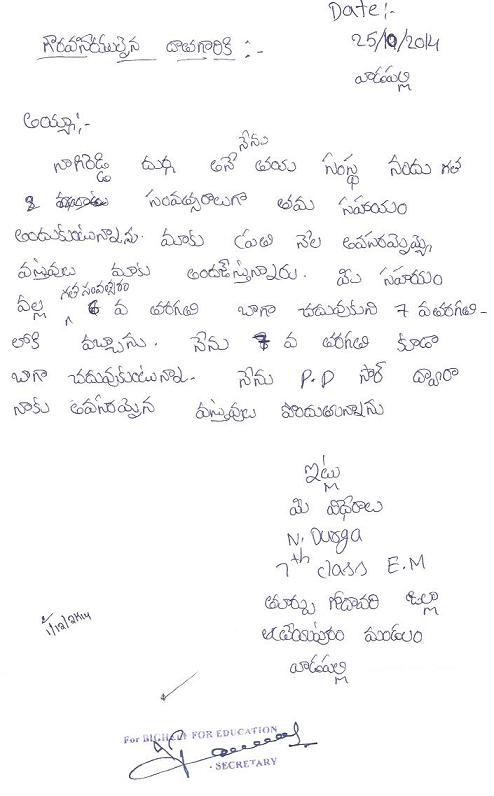 Date:-
25/10/2014
గౌరవనీయులైన దాతగారికి :-
వాడపల్లి
అయ్యా:-
నేను
నాగిరెడ్డి దుర్గ అనే తమ సంస్థ నందు గత
2 సంవత్సరాలుగా తమ సహాయం
అందుకుంటున్నాను. మాకు ప్రతి నెల అవసరమైన
వస్తువులు మాకు అందజేస్తున్నారు. మీ సహాయం
వల్ల గత సంవత్సరం 6 వ తరగతి బాగా చదువుకుని 7 వతరగతి-
లోకి వచ్చాను. నేను 7 వ తరగతి కూడా
బాగా చదువుకుంటున్నా. నేను P.D సార్ ద్వారా
నాకు అవసరమైన వస్తువులు పొందుతున్నాను
ఇట్లు
మీ విధేరాలు
N. Durga
7th class E.M
తూర్పు గోదావరి జిల్లా
ఆత్రేయపురం మండలం
వాడపల్లి
1/12/2014
For BIGHELP FOR EDUCATION
SECRETARY